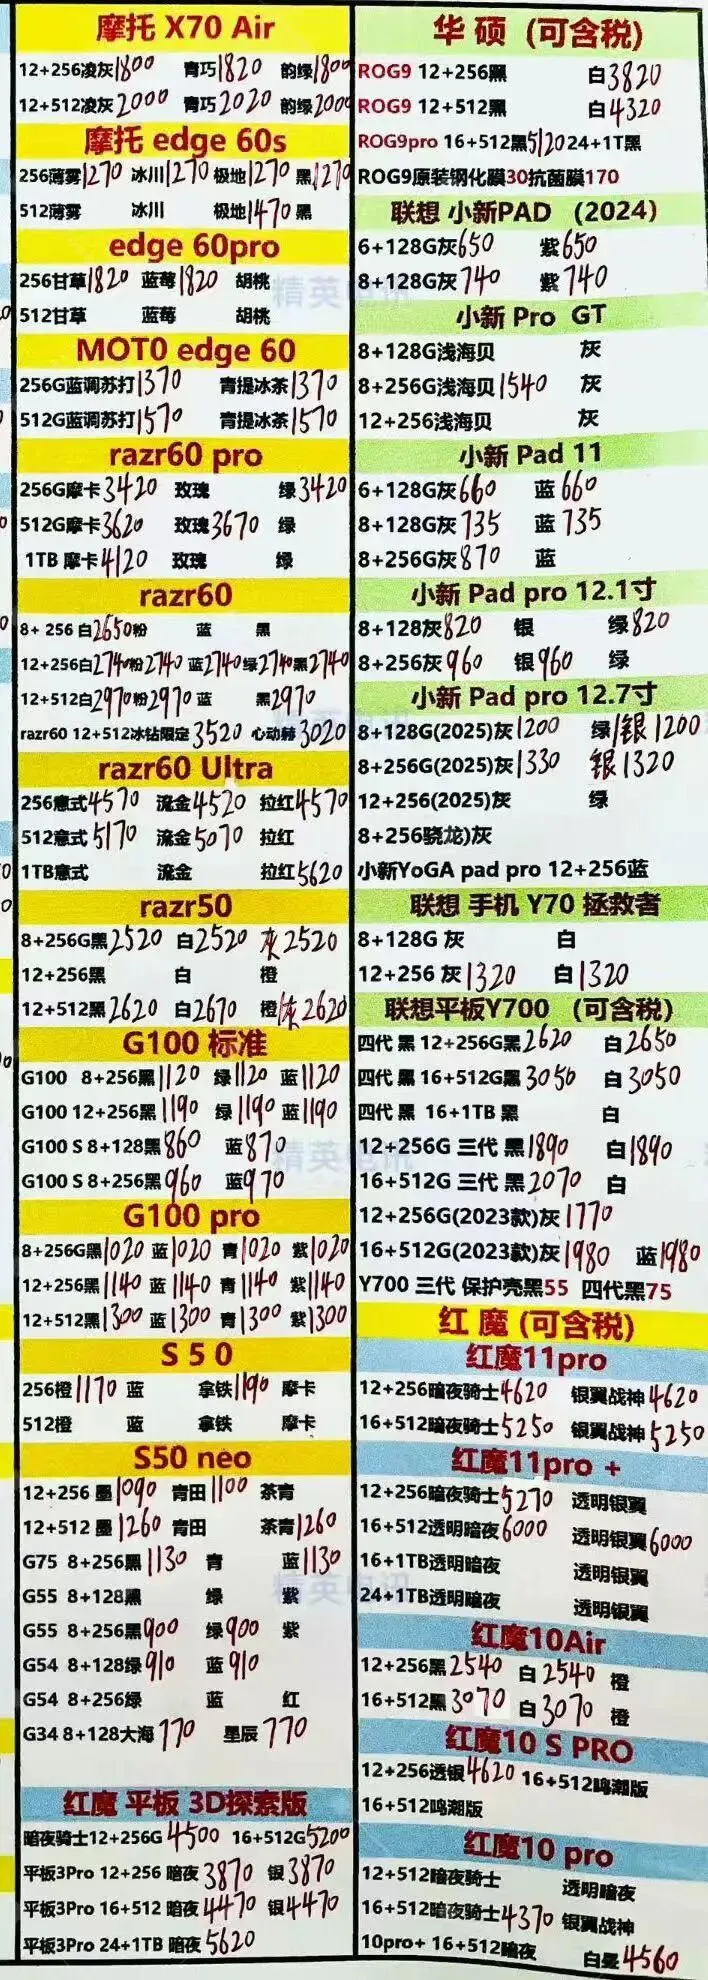 摩托 X70 Air
12+256凌灰1800 青巧1820 韵绿1800
12+512凌灰2000 青巧2020 韵绿2000
摩托 edge 60s
256薄雾1270 冰川1270 极地1270 黑1270
512薄雾 冰川 极地1470 黑
edge 60pro
256甘草1820 蓝莓1820 胡桃
512甘草 蓝莓 胡桃
MOTO edge 60
256G蓝调苏打1370 青提冰茶1370
512G蓝调苏打1570 青提冰茶1570
razr60 pro
256G摩卡3420 玫瑰 绿3420
512G摩卡3620 玫瑰3670 绿
1TB 摩卡4120 玫瑰 绿
razr60
8+ 256 白2650粉 蓝 黑
12+256白2740粉2740 蓝2740绿2740黑2740
12+512白2970粉2970 蓝 黑2970
razr60 12+512冰钻限定 3520 心动赫3020
razr60 Ultra
256意式4570 流金4520 拉红4570
512意式5170 流金5070 拉红
1TB意式 流金 拉红5620
razr50
8+256G黑2520 白2520 灰2520
12+256黑 白 橙
12+512黑2620 白2670 橙灰2620
G100 标准
G100 8+256黑1120 绿1120 蓝1120
G100 12+256黑1190 绿1190 蓝1190
G100 S 8+128黑860 蓝870
G100 S 8+256黑960 蓝970
G100 pro
8+256G黑1020 蓝1020 青1020 紫1020
12+256黑1140 蓝1140 青1140 紫1140
12+512黑1300 蓝1300 青1300 紫1300
S 5 0
256橙1170 蓝 拿铁1190 摩卡
512橙 蓝 拿铁 摩卡
S50 neo
12+256 墨1090 青田1100 茶青
12+512 墨1260 青田 茶青1260
G75 8+256黑1130 青 蓝1130
G55 8+128黑 绿 紫
G55 8+256黑900 绿900 紫
G54 8+128绿910 蓝910
G54 8+256绿 蓝 红
G34 8+128大海 770 星辰 770
红魔 平板 3D探索版
暗夜骑士12+256G 4500 16+512G5200
平板3Pro 12+256 暗夜3870 银3870
平板3Pro 16+512 暗夜4470 银4470
平板3Pro 24+1TB 暗夜5620
华 硕 (可含税)
ROG9 12+256黑 白3820
ROG9 12+512黑 白4320
ROG9pro 16+512黑5120 24+1T黑
ROG9原装钢化膜30抗菌膜170
联想 小新PAD (2024)
6+128G灰650 紫650
8+128G灰740 紫740
小新 Pro GT
8+128G浅海贝 灰
8+256G浅海贝1540 灰
12+256浅海贝 灰
小新 Pad 11
6+128G灰660 蓝660
8+128G灰735 蓝735
8+256G灰870 蓝
小新 Pad pro 12.1寸
8+128灰820 银 绿820
8+256灰960 银960 绿
小新 Pad pro 12.7寸
8+128G(2025)灰1200 绿/银1200
8+256G(2025)灰1330 银1320
12+256(2025)灰 绿
8+256骁龙)灰
小新YoGA pad pro 12+256蓝
联想 手机 Y70 拯救者
8+128G 灰 白
12+256 灰1320 白1320
联想平板Y700 (可含税)
四代 黑 12+256G黑2620 白2650
四代 黑 16+512G黑3050 白3050
四代 黑 16+1TB 黑 白
12+256G 三代 黑1890 白1890
16+512G 三代 黑2070 白
12+256G(2023款)灰1770
16+512G(2023款)灰1980 蓝1980
Y700 三代 保护壳黑55 四代黑75
红 魔 (可含税)
红魔11pro
12+256暗夜骑士4620 银翼战神4620
16+512暗夜骑士5250 银翼战神5250
红魔11pro +
12+256暗夜骑士5270 透明银翼
16+512透明暗夜6000 透明银翼6000
16+1TB透明暗夜 透明银翼
24+1TB透明暗夜 透明银翼
红魔10Air
12+256黑2540 白2540 橙
16+512黑3070 白3070 橙
红魔10 S PRO
12+256透银4620 16+512鸣潮版
16+512鸣潮版
红魔10 pro
12+512暗夜骑士 透明暗夜
16+512暗夜骑士4370 银翼战神
10pro+ 16+512暗夜 白曼4560